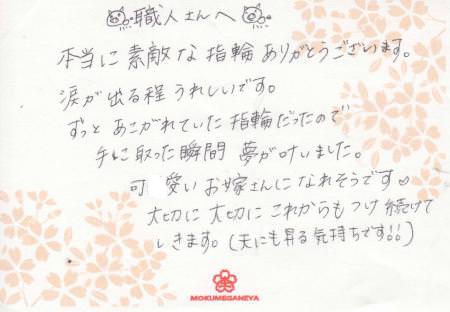 職人さんへ
本当に素敵な指輪ありがとうございます。
涙が出る程うれしいです。
ずっとあこがれていた指輪だったので
手に取った瞬間夢が叶いました。
可愛いお嫁さんになれそうです♡
大切に大切にこれからもつけ続けて
いきます。(天にも昇る気持ちです!!)
MOKUMEGANEYA